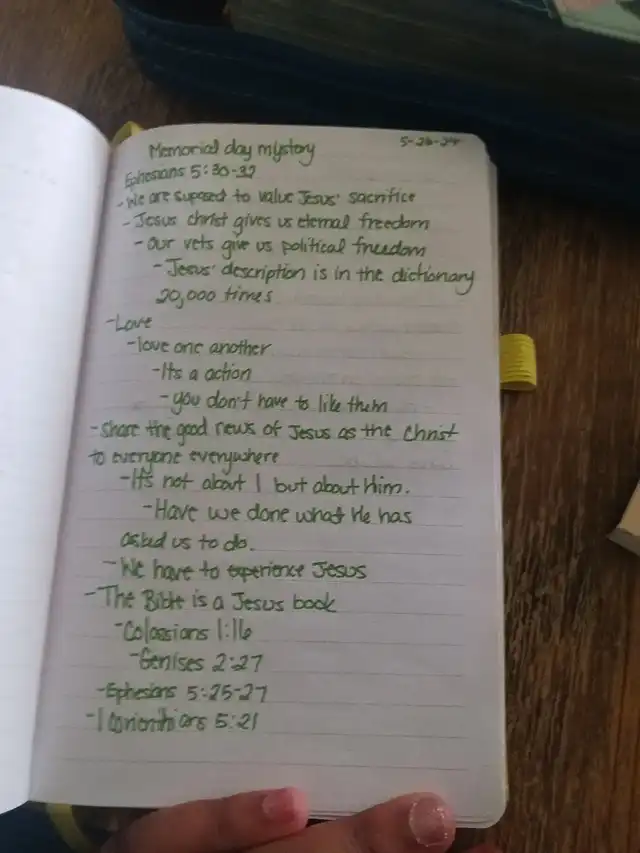 Memorial day mystery 5-26-24
Ephesians 5:30-32
-We are suposed to value Jesus' sacrifice
-Jesus christ gives us eternal freedom
-our vets give us political freedom
-Jesus' description is in the dictionary
20,000 times
-Love
-love one another
-Its a action
-you don't have to like them
-share the good news of Jesus as the Christ
to everyone everywhere
-It's not about I but about Him.
-Have we done what He has
asked us to do.
-We have to experience Jesus
-The Bible is a Jesus book
-Colossians 1:16
-Genises 2:27
-Ephesians 5:25-27
-1 Corienthians 5:21